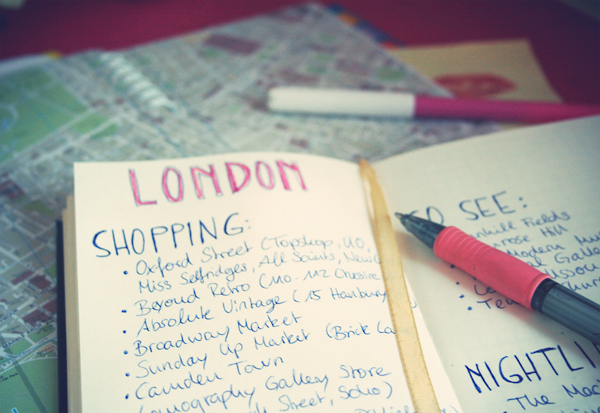 LONDON
SHOPPING:
• Oxford Street (Topshop, UO,
Miss Selfridges, All Saints, New
• Beyond Retro (110-112 Cheshire
• Absolute Vintage (15 Hanbury
• Broadway Market
• Sunday Up Market (Brick La
• Camden Town
Lomography Gallery Store
Street, Soho)
TO SEE:
Fields
rose Hill
Modern
Galle
NIGHTLI
The Mac